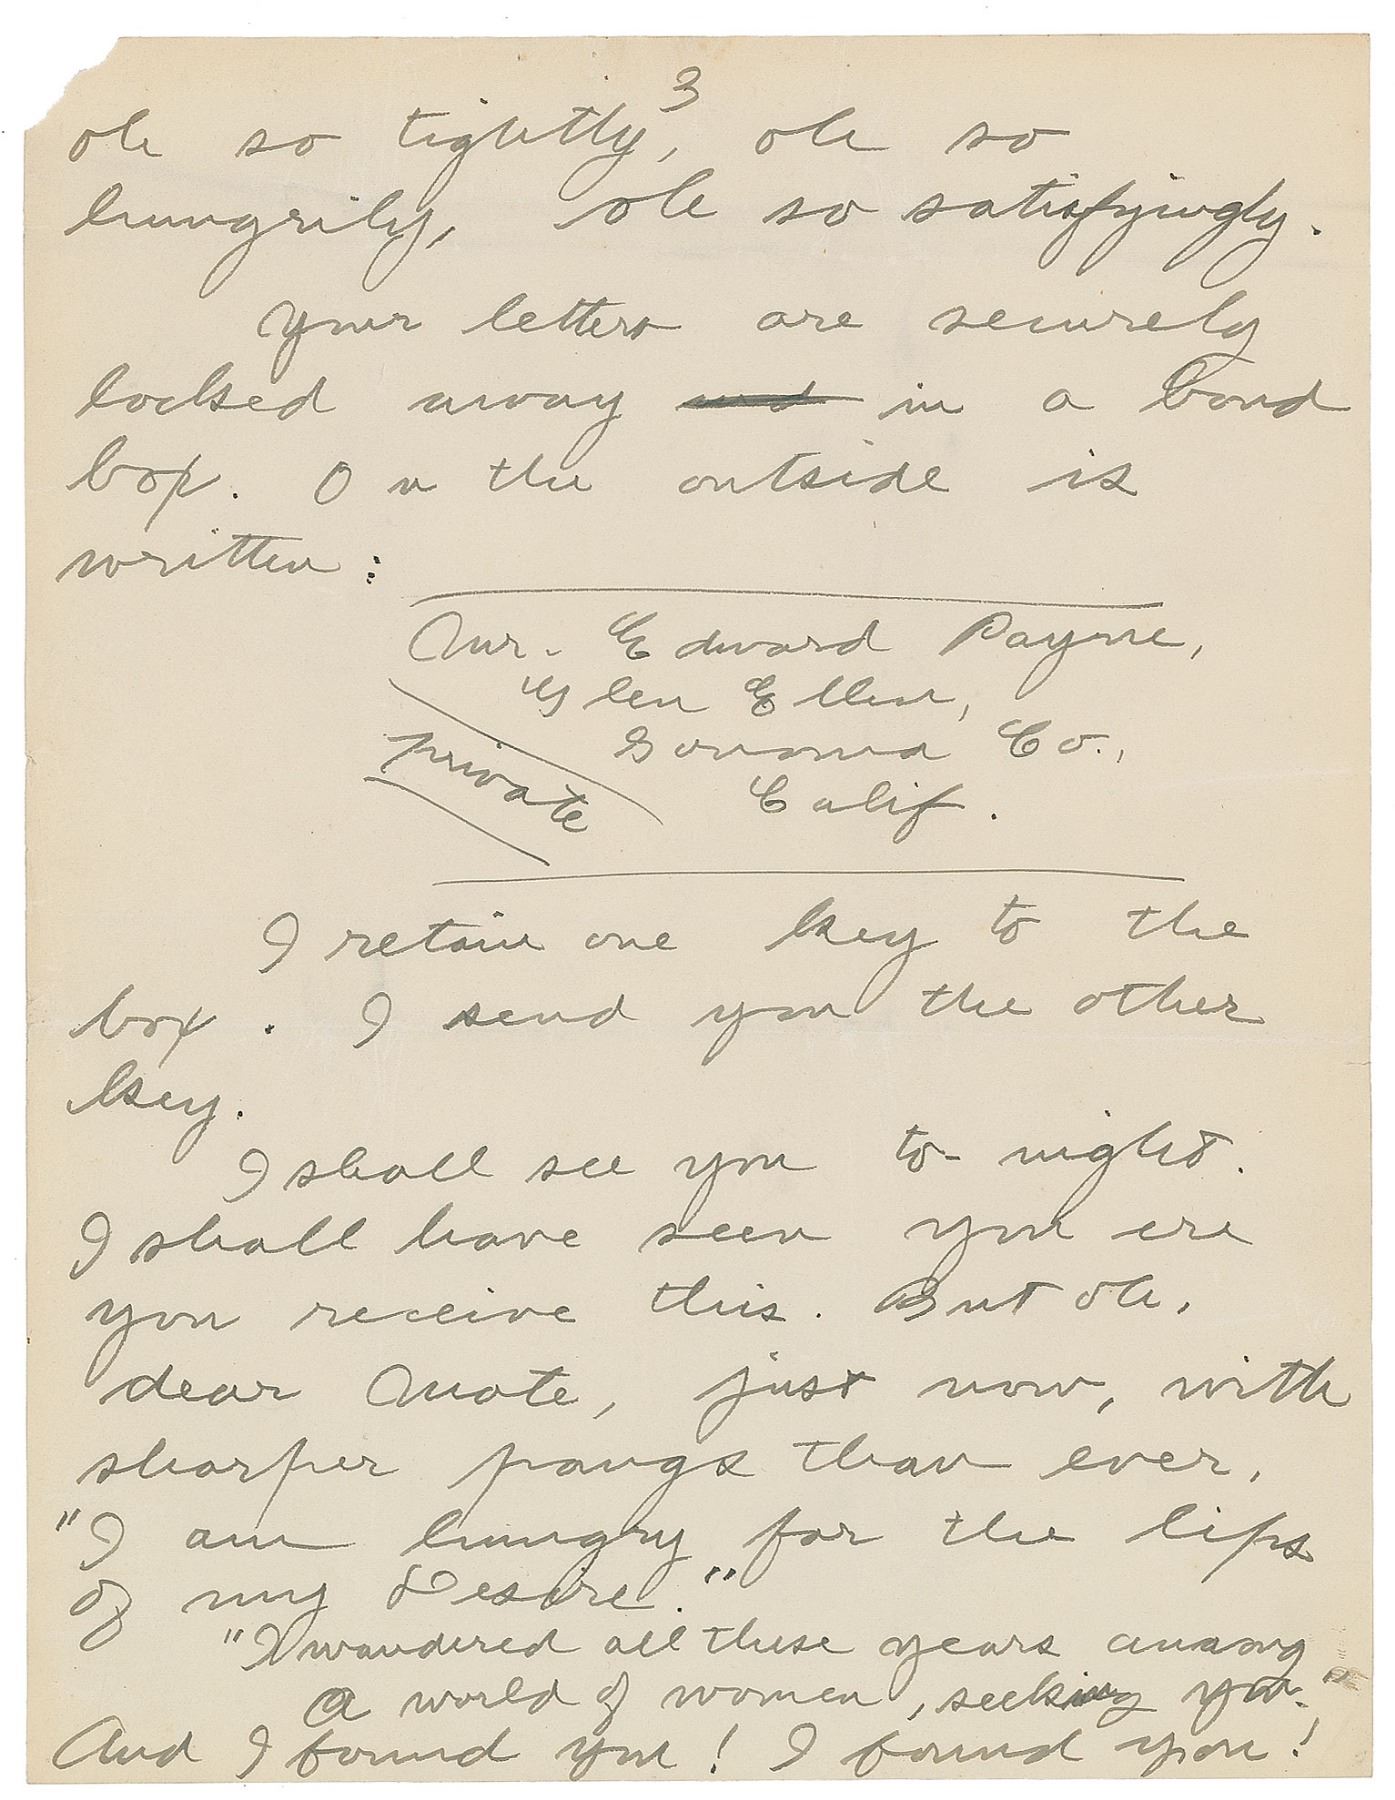 3
oh so tightly, oh so
hungrily, oh so satisfyingly.
Your letters are securely
locked away and in a bond
box. On the outside is
written:
Mr. Edward Payne,
Glen Ellen,
Sonoma Co.,
Private
Calif.
I retain one key to the
box. I send you the other
key.
I shall see you to-night.
I shall have seen you ere
you receive this. But oh,
dear Mate, just now, with
sharper pangs than ever,
"I am hungry for the lips
of my desire."
"I wandered all these years among
a world of women, seeking you."
And I found you! I found you!